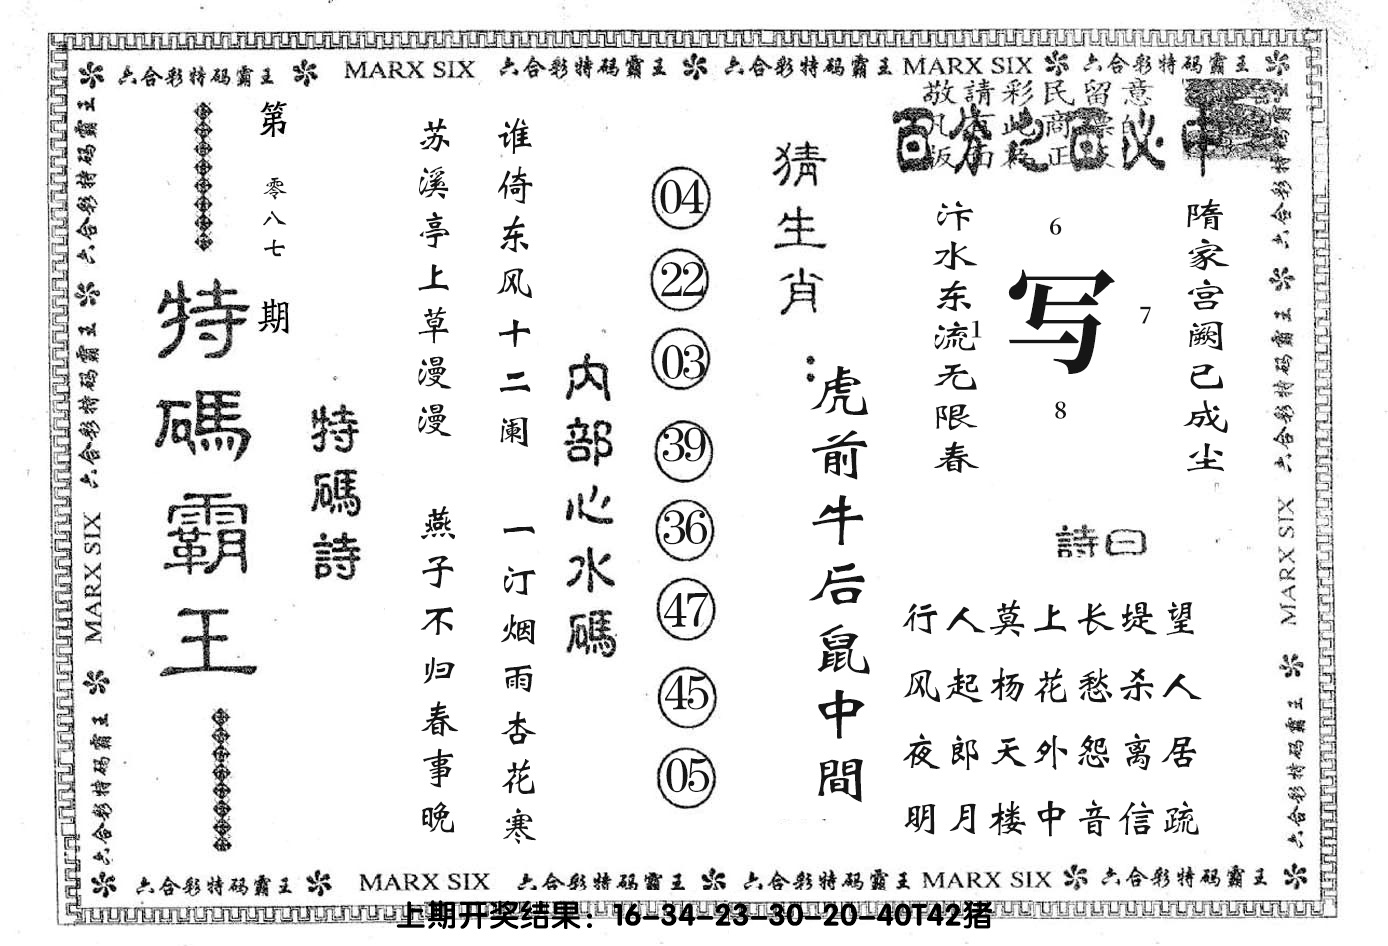 六合彩特码霸王 MARX SIX 六合彩特码霸王 六合彩特码霸王 MARX SIX 六合彩特码霸王
六合彩特码霸王 六合彩特码霸王 MARX SIX 六合彩特码霸王
第零八七期
特碼霸王
特碼詩
苏溪亭上草漫漫
谁倚东风十二阑
燕子不归春事晚
一汀烟雨杏花寒
内部心水碼
04
22
03
39
36
47
45
05
猜生肖：
虎前牛后鼠中間
敬請彩民留意
隋家宫阙已成尘
汴水东流无限春
6
1
写
7
8
詩曰
行人莫上长堤望
风起杨花愁杀人
夜郎天外怨离居
明月楼中音信疏
六合彩特码霸王 六合彩特码霸王 MARX SIX 六合彩特码霸王
六合彩特码霸王 MARX SIX 六合彩特码霸王 六合彩特码霸王 MARX SIX 六合彩特码霸王
上期开奖结果：16-34-23-30-20-40T42猪